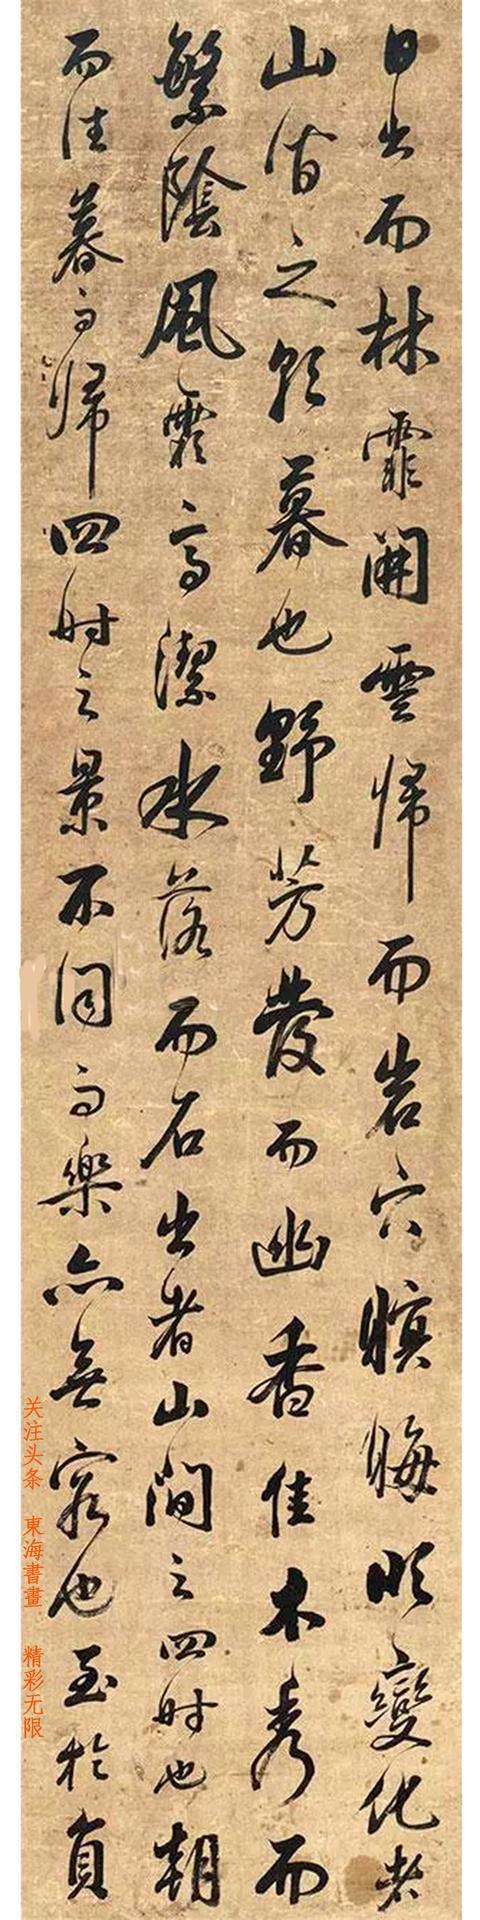 日出而林霏開雲歸而岩穴暝晦明變化者
山間之朝暮也野芳發而幽香佳木秀而
繁陰風霜高潔水落而石出者山間之四時也朝
而往暮而歸四時之景不同而樂亦無窮也至於負
关注头条 東海書畫 精彩无限